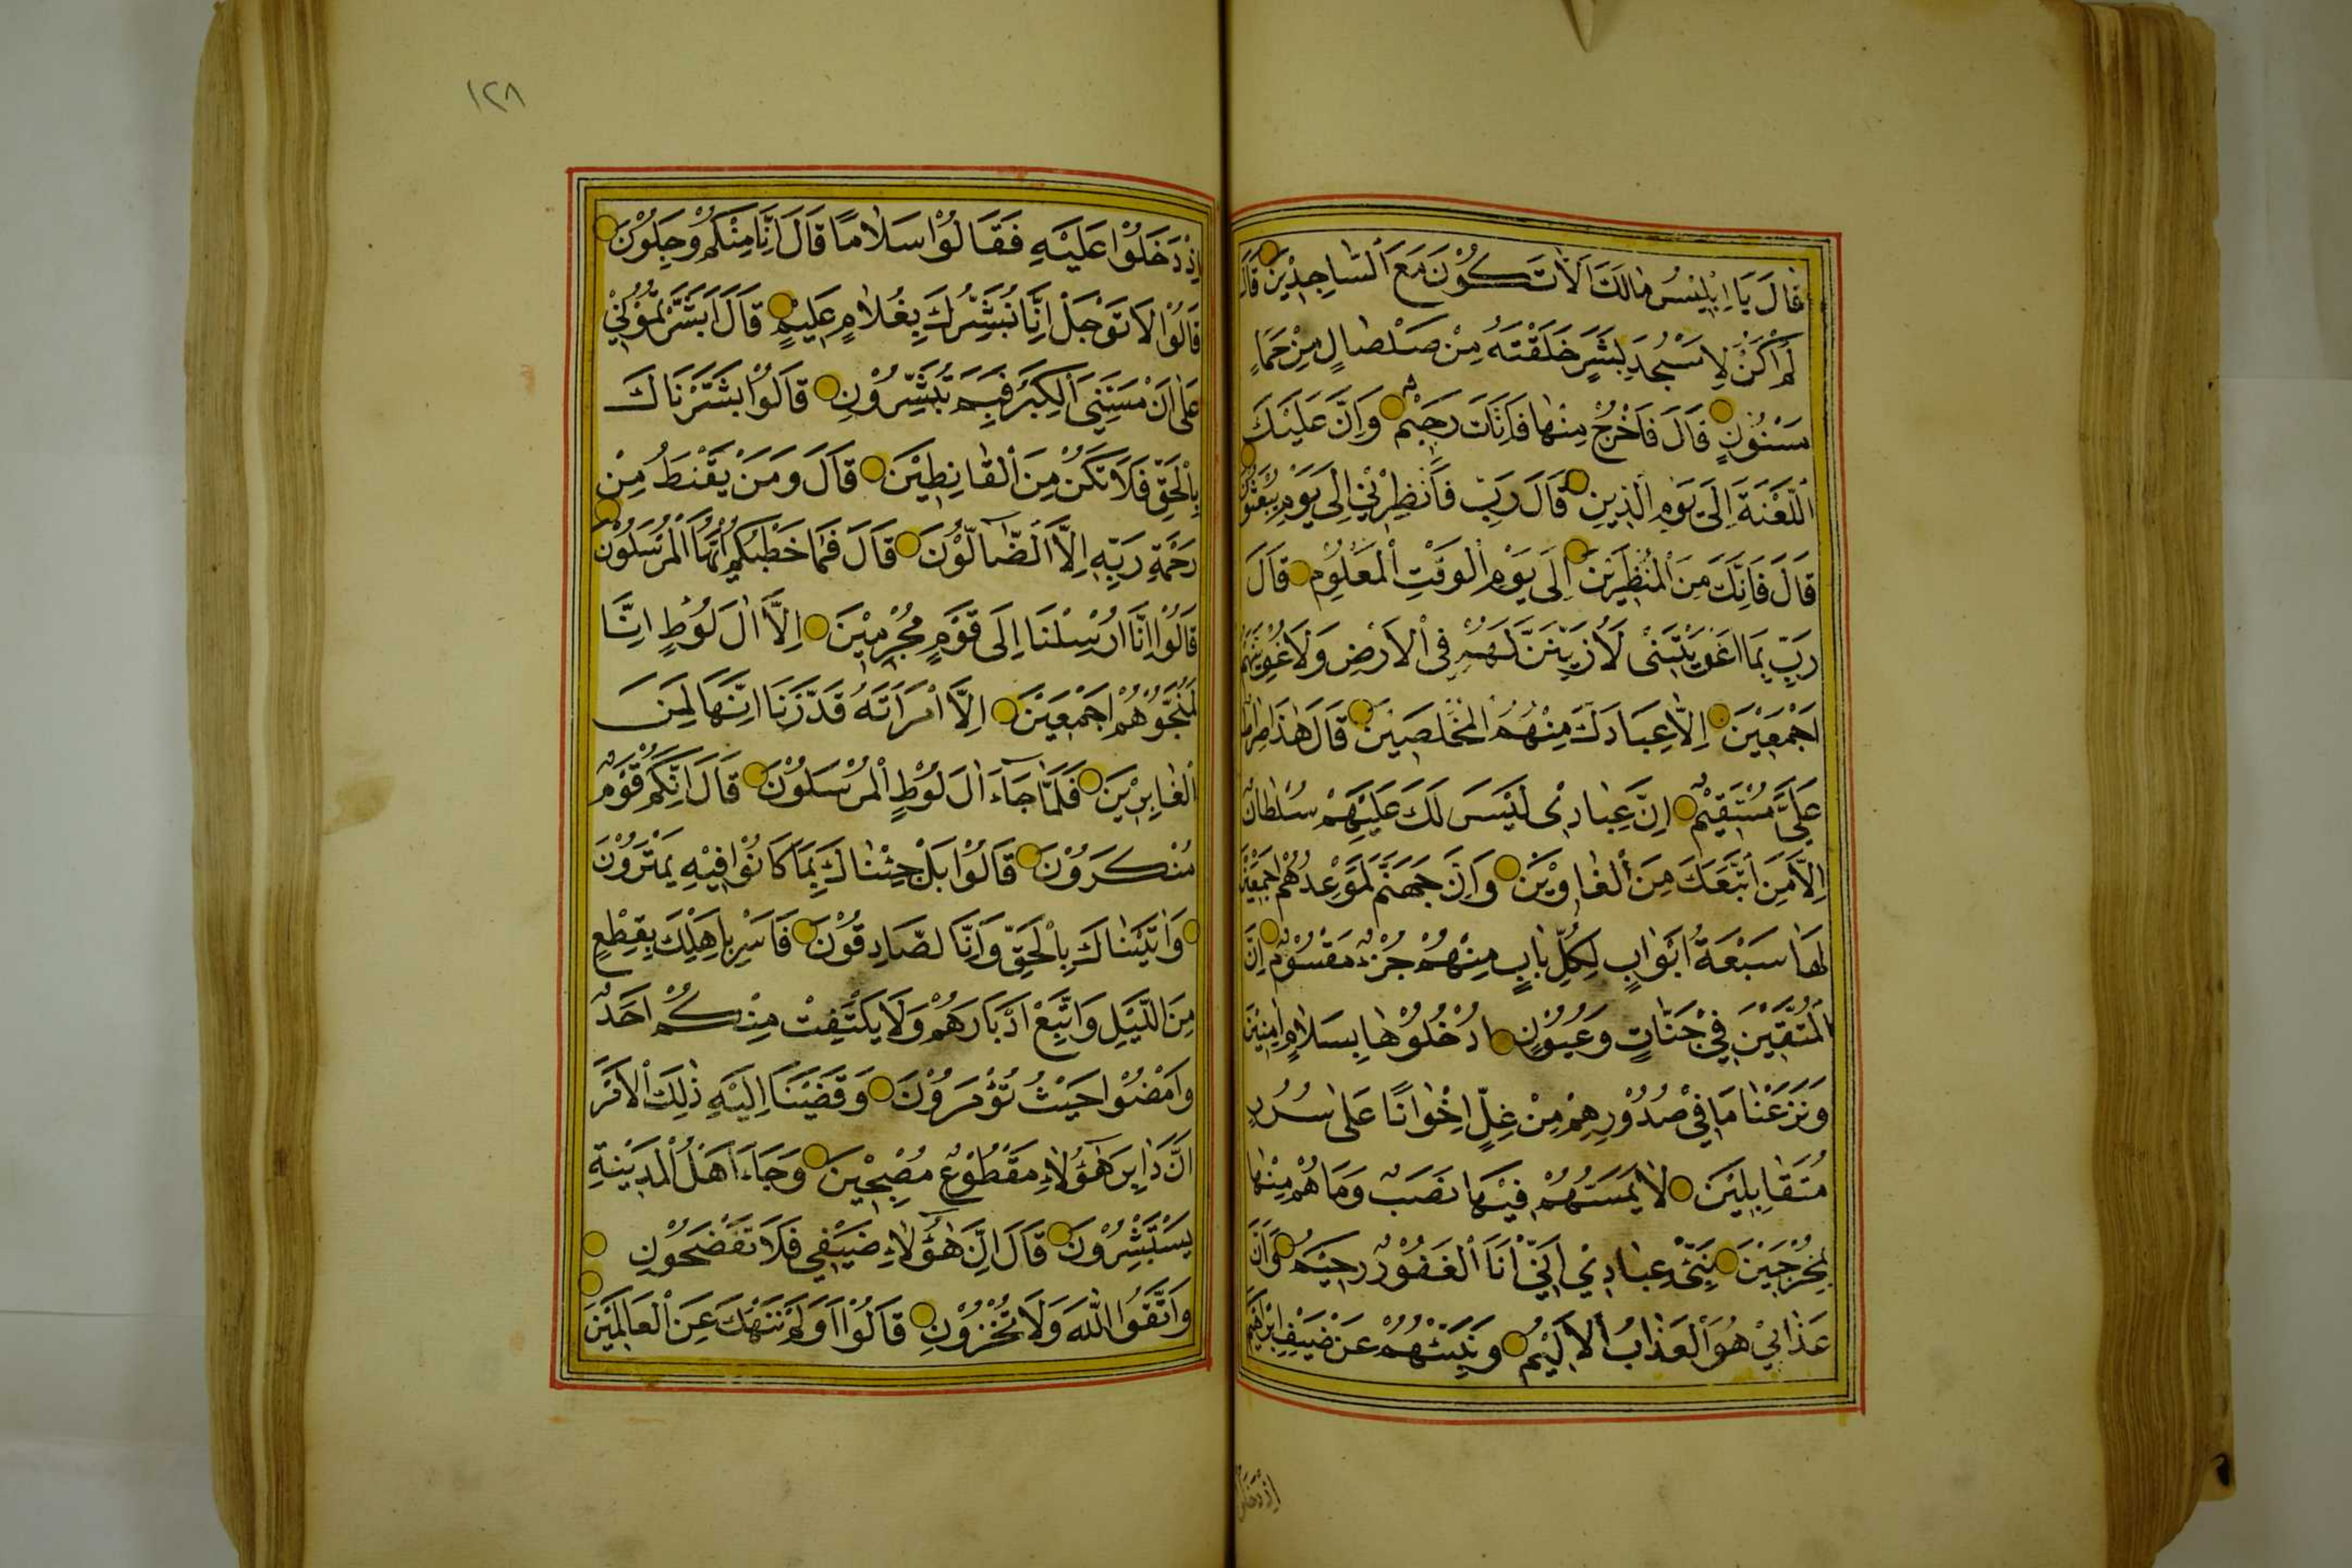 قَالَ يَا اِبْلِيْسُ مَالَكَ اَلَّا تَكُوْنَ مَعَ السَّاجِدِيْنَ قَالَ
لَمْ اَكُنْ لِاَسْجُدَ لِبَشَرٍ خَلَقْتَهُ مِنْ صَلْصَالٍ مِنْ حَمَاٍ
مَسْنُوْنٍ قَالَ فَاخْرُجْ مِنْهَا فَاِنَّكَ رَجِيْمٌ وَاِنَّ عَلَيْكَ
اللَّعْنَةَ اِلَى يَوْمِ الدِّيْنِ قَالَ رَبِّ فَاَنْظِرْنِيْ اِلَى يَوْمِ يُبْعَثُوْنَ
قَالَ فَاِنَّكَ مِنَ الْمُنْظَرِيْنَ اِلَى يَوْمِ الْوَقْتِ الْمَعْلُوْمِ قَالَ
رَبِّ بِمَا اَغْوَيْتَنِيْ لَاُزَيِّنَنَّ لَهُمْ فِى الْاَرْضِ وَلَاُغْوِيَنَّهُمْ
اَجْمَعِيْنَ اِلَّا عِبَادَكَ مِنْهُمُ الْمُخْلَصِيْنَ قَالَ هٰذَا صِرَاطٌ
عَلَىَّ مُسْتَقِيْمٌ اِنَّ عِبَادِى لَيْسَ لَكَ عَلَيْهِمْ سُلْطَانٌ
اِلَّا مَنِ اتَّبَعَكَ مِنَ الْغَاوِيْنَ وَاِنَّ جَهَنَّمَ لَمَوْعِدُهُمْ اَجْمَعِيْنَ
لَهَا سَبْعَةُ اَبْوَابٍ لِكُلِّ بَابٍ مِنْهُمْ جُزْءٌ مَقْسُوْمٌ اِنَّ
الْمُتَّقِيْنَ فِيْ جَنَّاتٍ وَعُيُوْنٍ اُدْخُلُوْهَا بِسَلَامٍ اٰمِنِيْنَ
وَنَزَعْنَا مَا فِيْ صُدُوْرِهِمْ مِنْ غِلٍّ اِخْوَانًا عَلَى سُرُرٍ
مُتَقَابِلِيْنَ لَا يَمَسُّهُمْ فِيْهَا نَصَبٌ وَمَا هُمْ مِنْهَا
بِمُخْرَجِيْنَ نَبِّئْ عِبَادِيْ اَنِّيْ اَنَا الْغَفُوْرُ رَحِيْمُ وَاَنَّ
عَذَابِيْ هُوَ الْعَذَابُ الْاَلِيْمُ وَنَبِّئْهُمْ عَنْ ضَيْفِ اِبْرَاهِيْمَ
اِذْ دَخَلُوْا
١٢٨
اِذْ دَخَلُوْا عَلَيْهِ فَقَالُوْا سَلَامًا قَالَ اِنَّا مِنْكُمْ وَجِلُوْنَ
قَالُوْا لَا تَوْجَلْ اِنَّا نُبَشِّرُكَ بِغُلَامٍ عَلِيْمٍ قَالَ اَبَشَّرْتُمُوْنِيْ
عَلَى اَنْ مَسَّنِيَ الْكِبَرُ فَبِمَ تُبَشِّرُوْنِ قَالُوْا بَشَّرْنَاكَ
بِالْحَقِّ فَلَا تَكُنْ مِنَ الْقَانِطِيْنَ قَالَ وَمَنْ يَقْنَطُ مِنْ
رَحْمَةِ رَبِّهِ اِلَّا الضَّالُّوْنَ قَالَ فَمَا خَطْبُكُمْ اَيُّهَا الْمُرْسَلُوْنَ
قَالُوْا اِنَّا اُرْسِلْنَا اِلَى قَوْمٍ مُجْرِمِيْنَ اِلَّا اٰلَ لُوْطٍ اِنَّا
لَمُنَجُّوْهُمْ اَجْمَعِيْنَ اِلَّا امْرَاَتَهُ قَدَّرْنَا اِنَّهَا لَمِنَ
الْغَابِرِيْنَ فَلَمَّا جَاءَ اٰلَ لُوْطٍ الْمُرْسَلُوْنَ قَالَ اِنَّكُمْ قَوْمٌ
مُنْكَرُوْنَ قَالُوْا بَلْ جِئْنَاكَ بِمَا كَانُوْا فِيْهِ يَمْتَرُوْنَ
وَاٰتَيْنَاكَ بِالْحَقِّ وَاِنَّا لَصَادِقُوْنَ فَاَسْرِ بِاَهْلِكَ بِقِطْعٍ
مِنَ اللَّيْلِ وَاتَّبِعْ اَدْبَارَهُمْ وَلَا يَلْتَفِتْ مِنْكُمْ اَحَدٌ
وَامْضُوْا حَيْثُ تُؤْمَرُوْنَ وَقَضَيْنَا اِلَيْهِ ذٰلِكَ الْاَمْرَ
اَنَّ دَابِرَ هٰؤُلَاءِ مَقْطُوْعٌ مُصْبِحِيْنَ وَجَاءَ اَهْلُ الْمَدِيْنَةِ
يَسْتَبْشِرُوْنَ قَالَ اِنَّ هٰؤُلَاءِ ضَيْفِيْ فَلَا تَفْضَحُوْنِ
وَاتَّقُوا اللّٰهَ وَلَا تُخْزُوْنِ قَالُوْا اَوَلَمْ نَنْهَكَ عَنِ الْعَالَمِيْنَ